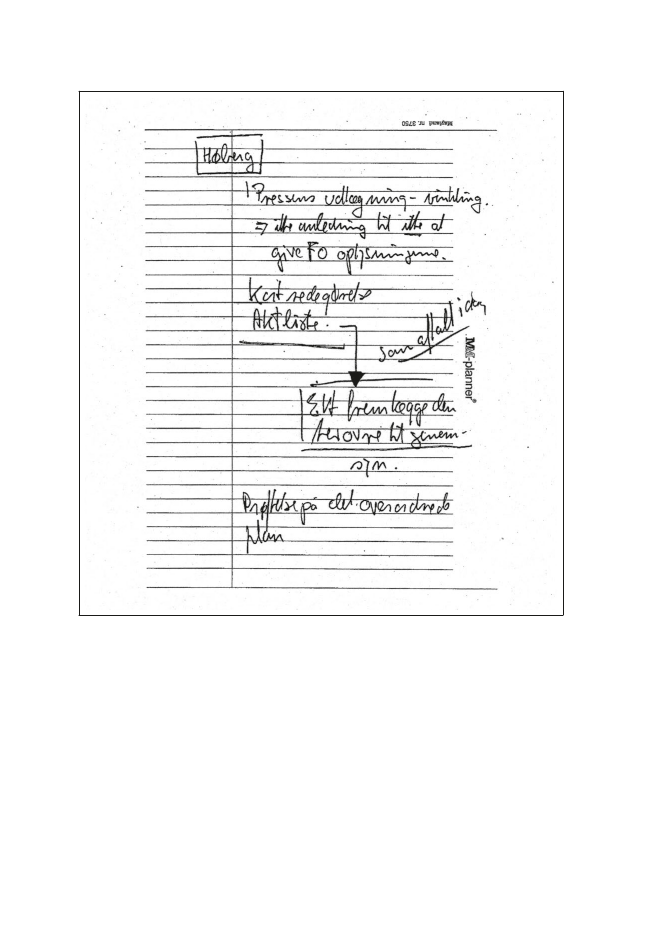 Mayland nr. 3750
Høberg
Pressens udlægning - vinkling.
⇒ ikke anledning til ikke at
give FO oplysningerne.
Kort redegørelse
Aktliste.
som aftalt idag
MM-planner®
Evt fremlægge den
herovre til gennem-
syn.
Drøftelse på det overordnede
plan